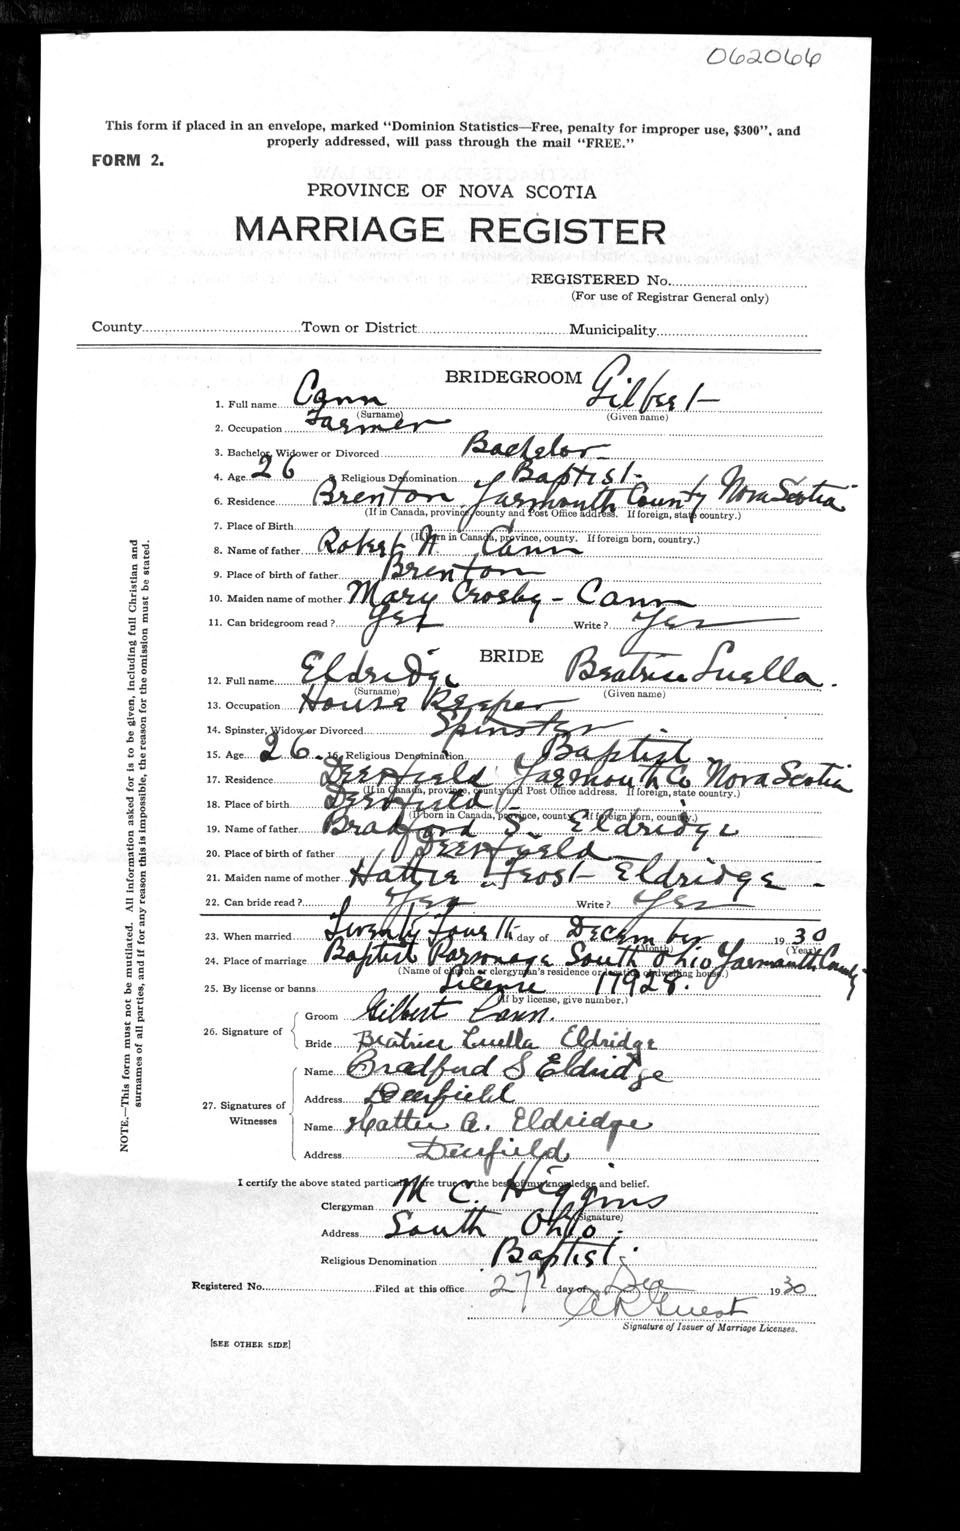 062066
This form if placed in an envelope, marked "Dominion Statistics—Free, penalty for improper use, $300", and
properly addressed, will pass through the mail "FREE."
FORM 2.
PROVINCE OF NOVA SCOTIA
MARRIAGE REGISTER
REGISTERED No.
(For use of Registrar General only)
County Town or District Municipality
BRIDEGROOM
1. Full name Cann Gilbert
(Surname) (Given name)
2. Occupation Farmer
3. Bachelor, Widower or Divorced Bachelor
4. Age 26 5. Religious Denomination Baptist
6. Residence Brenton Yarmouth County Nova Scotia
(If in Canada, province, county and Post Office address. If foreign, state country.)
7. Place of Birth
(If born in Canada, province, county. If foreign born, country.)
8. Name of father Robert H Cann
9. Place of birth of father Brenton
10. Maiden name of mother Mary Crosby - Cann
11. Can bridegroom read? Yes Write? Yes
BRIDE
12. Full name Eldridge Beatrice Luella.
(Surname) (Given name)
13. Occupation House Keeper
14. Spinster, Widow or Divorced Spinster
15. Age 26. 16. Religious Denomination Baptist
17. Residence Deerfield Yarmouth Co Nova Scotia
(If in Canada, province, county and Post Office address. If foreign, state country.)
18. Place of birth Deerfield
(If born in Canada, province, county. If foreign born, country.)
19. Name of father Bradford S. Eldridge
20. Place of birth of father Deerfield
21. Maiden name of mother Hattie Frost Eldridge -
22. Can bride read? Yes Write? Yes
23. When married Twenty Fourth day of December 1930
(Month) (Year)
24. Place of marriage Baptist Parsonage South Ohio Yarmouth County
(Name of church or clergyman's residence or location of dwelling house.)
25. By license or banns License 11928.
(If by license, give number.)
26. Signature of
Groom Gilbert Cann.
Bride Beatrice Luella Eldridge
27. Signatures of Witnesses
Name Bradford S Eldridge
Address Deerfield
Name Hattie A. Eldridge
Address Deerfield
I certify the above stated particulars are true to the best of my knowledge and belief.
Clergyman M C. Higgins
(Signature)
Address South Ohio.
Religious Denomination Baptist.
Registered No. Filed at this office 27 day of Dec 1930
Guest
Signature of Issuer of Marriage Licenses.
[SEE OTHER SIDE]
NOTE.—This form must not be mutilated. All information asked for is to be given, including full Christian and
surnames of all parties, and if for any reason this is impossible, the reason for the omission must be stated.